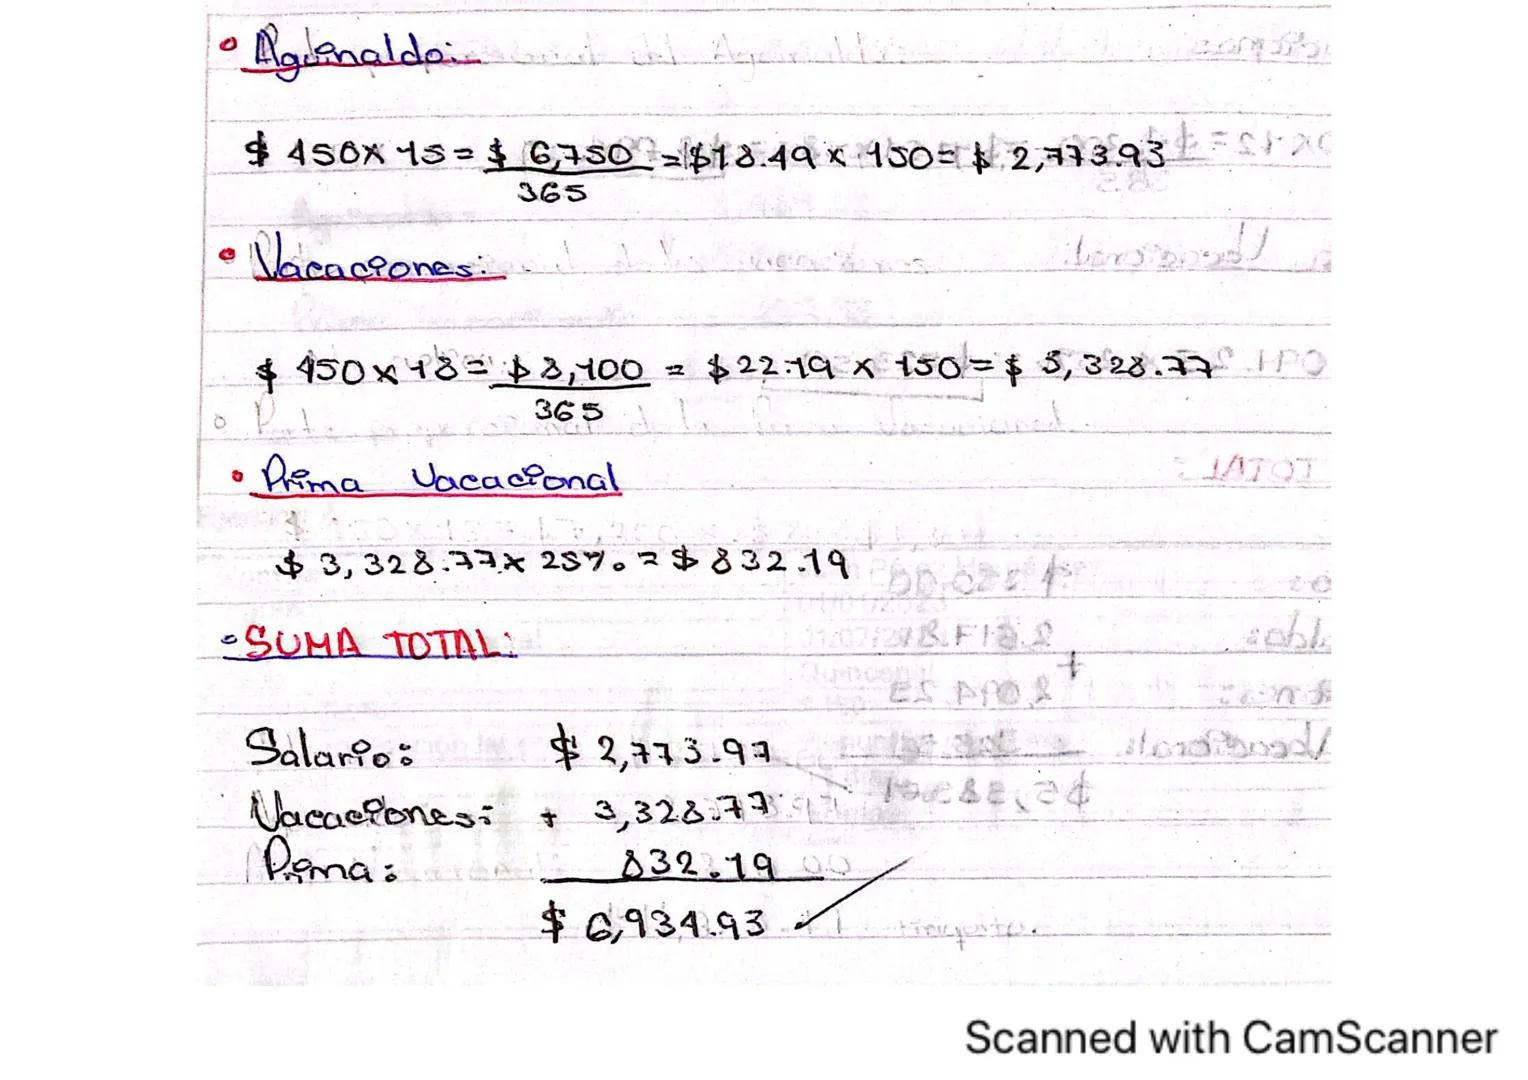 • Aguinaldo:
$ 450 x 15 = $ 6,750 = $18.49 x 150 = $ 2,773.93
365
• Vacaciones:
$ 450 x 18 = $ 8,100 = $22.19 x 150 = $ 3,328.77
365
• Prima Vacacional
$ 3,328.77 x 25% = $ 832.19
• SUMA TOTAL:
Salario: $ 2,773.97
Vacaciones: + 3,328.77
Prima: 832.19
$ 6,934.93
Scanned with CamScanner